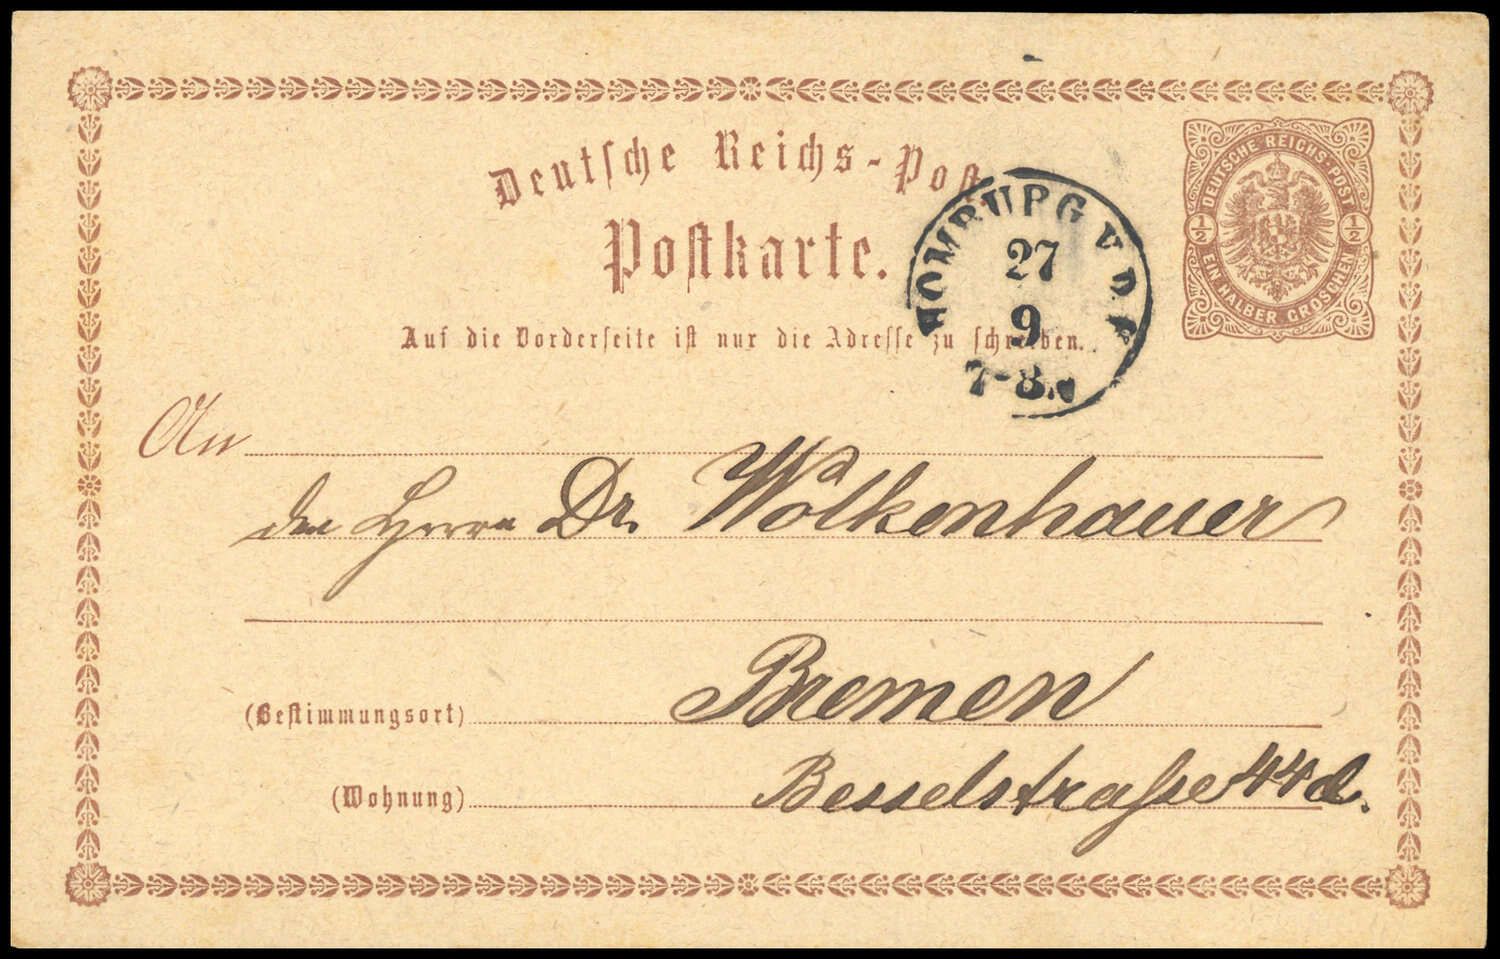 Deutsche Reichs-Post
Postkarte.
DEUTSCHE REICHS-POST
½ ½
EIN HALBER GROSCHEN
HOMBURG V. D. H.
27
9
7-8 N
Auf die Vorderseite ist nur die Adresse zu schreiben.
An
den Herrn Dr. Wolkenhauer
(Bestimmungsort) Bremen
(Wohnung) Besselstraße 44 d.